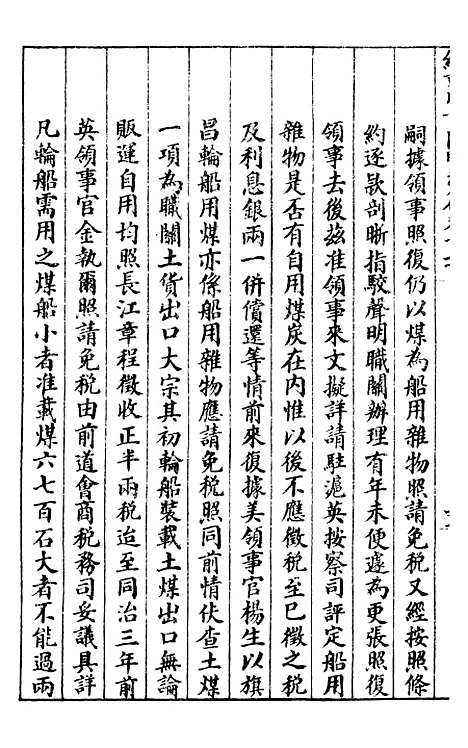 嗣據領事照復仍以煤為船用雜物照請免稅又經按照條
約逐欵剖晰指駮聲明職關辦理有年未便遽為更張照復
領事去後茲准領事來文擬詳請駐滬英按察司評定船用
雜物是否有自用煤炭在內惟以後不應徵稅至已徵之稅
及利息銀兩一併償還等情前來復據美領事官楊生以旗
昌輪船用煤亦係船用雜物應請免稅照同前情伏查土煤
一項為職關土貨出口大宗其初輪船裝載土煤出口無論
販運自用均照長江章程徵收正半兩稅迨至同治三年前
英領事官金執爾照請免稅由前道會商稅務司妥議具詳
凡輪船需用之煤船小者准載煤六七百石大者不能過兩